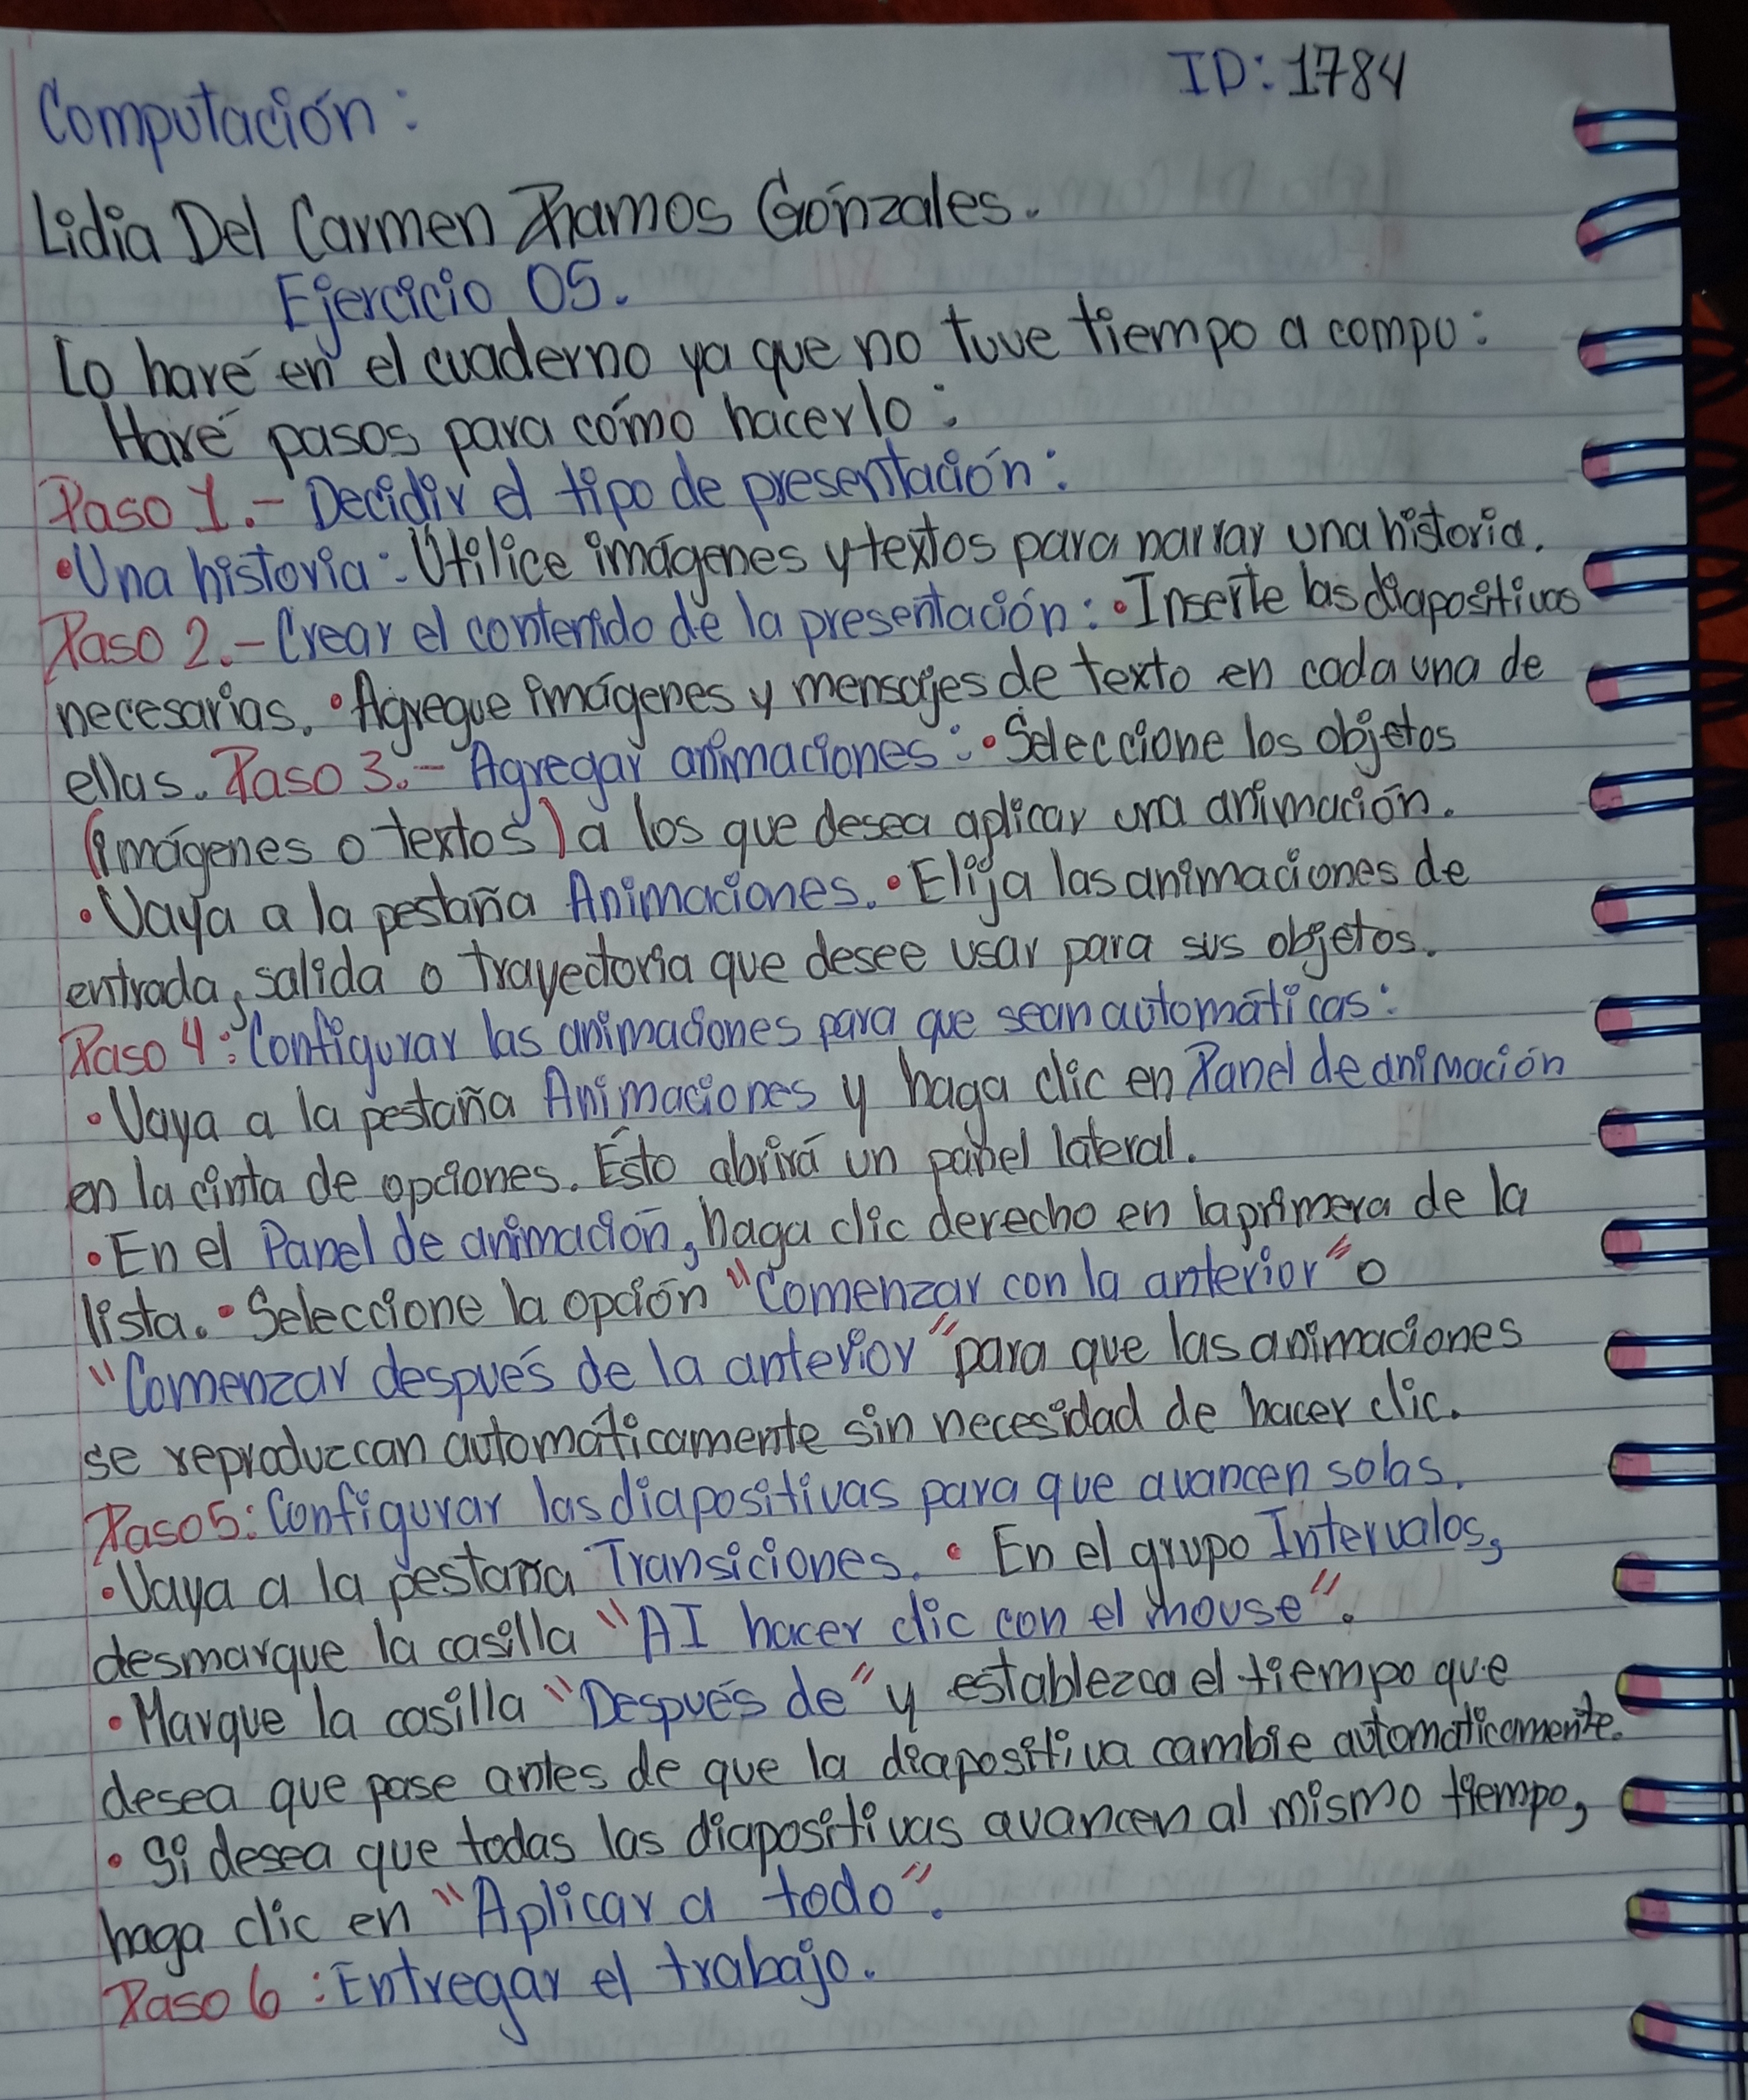 ID: 1784
Computación:
Lidia Del Carmen Ramos Gónzales.
Ejercicio 05.
Lo haré en el cuaderno ya que no tuve tiempo a compu:
Haré pasos para cómo hacerlo:
Paso 1.- Decidir el tipo de presentación:
•Una historia: Utilice imágenes y textos para narrar una historia.
Paso 2.- Crear el contenido de la presentación: •Inserte las diapositivas
necesarias. •Agregue imágenes y mensajes de texto en cada una de
ellas. Paso 3.- Agregar animaciones: •Seleccione los objetos
(imágenes o textos) a los que desea aplicar una animación.
•Vaya a la pestaña Animaciones. •Elija las animaciones de
entrada, salida o trayectoria que desee usar para sus objetos.
Paso 4: Configurar las animaciones para que sean automáticas:
•Vaya a la pestaña Animaciones y haga clic en Panel de animación
en la cinta de opciones. Esto abrirá un panel lateral.
•En el Panel de animación, haga clic derecho en la primera de la
lista. •Seleccione la opción "Comenzar con la anterior" o
"Comenzar después de la anterior" para que las animaciones
se reproduzcan automáticamente sin necesidad de hacer clic.
Paso 5: Configurar las diapositivas para que avancen solas.
•Vaya a la pestaña Transiciones. • En el grupo Intervalos,
desmarque la casilla "AI hacer clic con el mouse".
•Marque la casilla "Después de" y establezca el tiempo que
desea que pase antes de que la diapositiva cambie automáticamente.
•Si desea que todas las diapositivas avancen al mismo tiempo,
haga clic en "Aplicar a todo".
Paso 6: Entregar el trabajo.